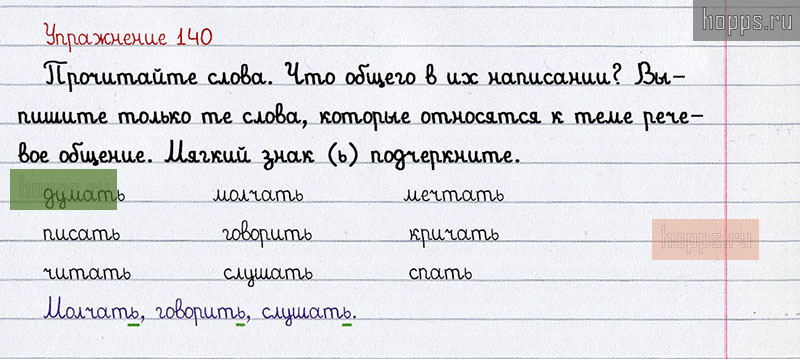 hopps.ru
Упражнение 140
Прочитайте слова. Что общего в их написании? Вы-
пишите только те слова, которые относятся к теме рече-
вое общение. Мягкий знак (ь) подчеркните.
hopps.ru
думать молчать мечтать
писать говорить кричать
hopps.ru
читать слушать спать
Молчать, говорить, слушать.